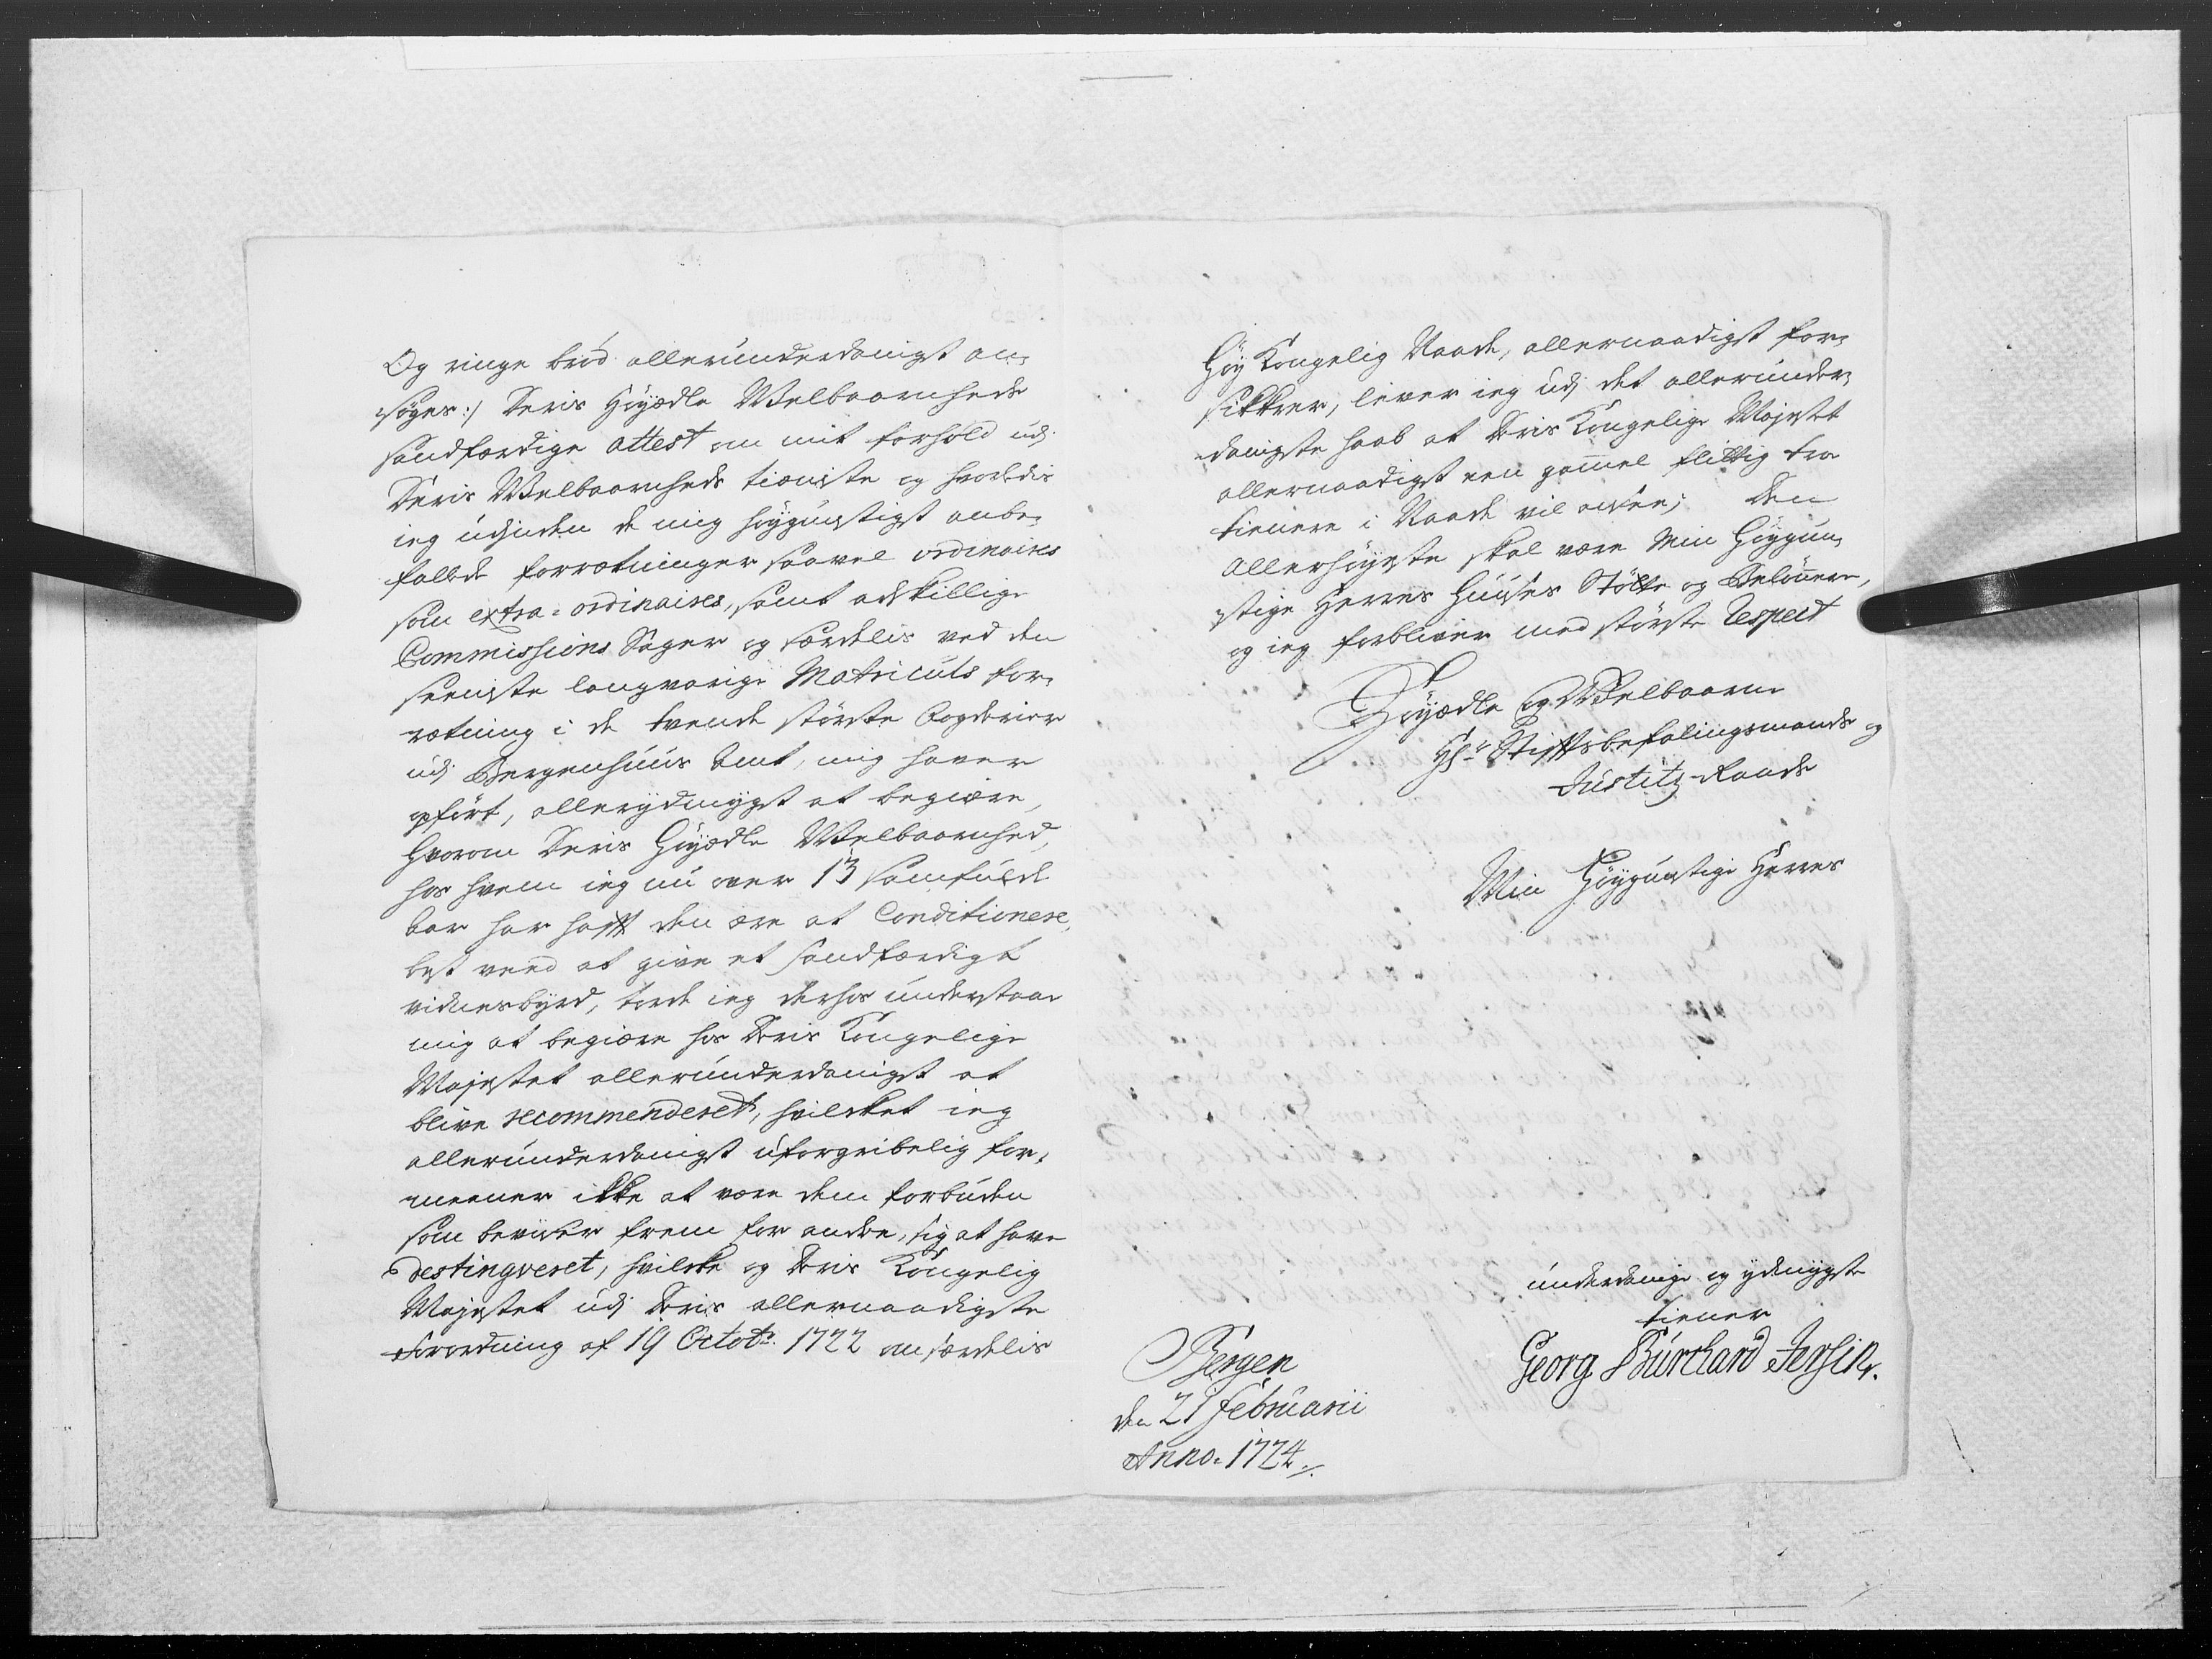 Og ringe brød allerunderdanigst an-
søges:/ Deris Høyædle Welbaarenheds
sandfærdige attest om mit forhold udj
Deris Welbaarenheds tieneste og hvorledis
ieg udjnden de mig høygunstigst anbe-
falede forretninger saavel ordinaires
som extra-ordinaires, samt adskillige
Commissions Sager og særdelis ved den
seeniste langvarige Matriculs for-
retning i de tvende største Fogderier
udj Bergenhuus Amt, mig haver
opført, allerydmygst at begiære,
hvorom Deris Høyædle Welbaarenhed,
hos hvem ieg nu over 13 samfulde
Aar har hafft den ære at Conditionere,
best veed at give et sandfærdigt
vidnesbyrd, torde ieg derhos understaae
mig at begiære hos Deris Kongelige
Majestet allerunderdanigst at
blive recommenderet, hvilcket ieg
allerunderdanigst uforgribelig for-
meener ikke at være dem forbuden
som beviser frem for andre, sig at have
destingveret, hvilcke og Deris Kongelig
Majestet udj Deris allernaadigste
Forordning af 19 Octobr: 1722 om særdelis
Høy Kongelig Naade, allernaadigst for-
sikkrer, lever ieg udj det allerunder-
danigste haab at Deris Kongelige Majestet
allernaadigst een gamel flittig tro
tienere i Naade vil ansee; Den
Allerhøyeste skal være Min Høygun-
stige Herres Huuses Støtte og Belønnere,
og ieg forbliver med største Respect
Høyædle og Welbaarne
Hr: Stifftsbefalingsmands og
Justitz-Raads
Min Høygunstige Herres
underdanige og ydmygste
tiener
Georg Burchard Jersin.
Bergen
den 21 Februarii
Anno. 1724